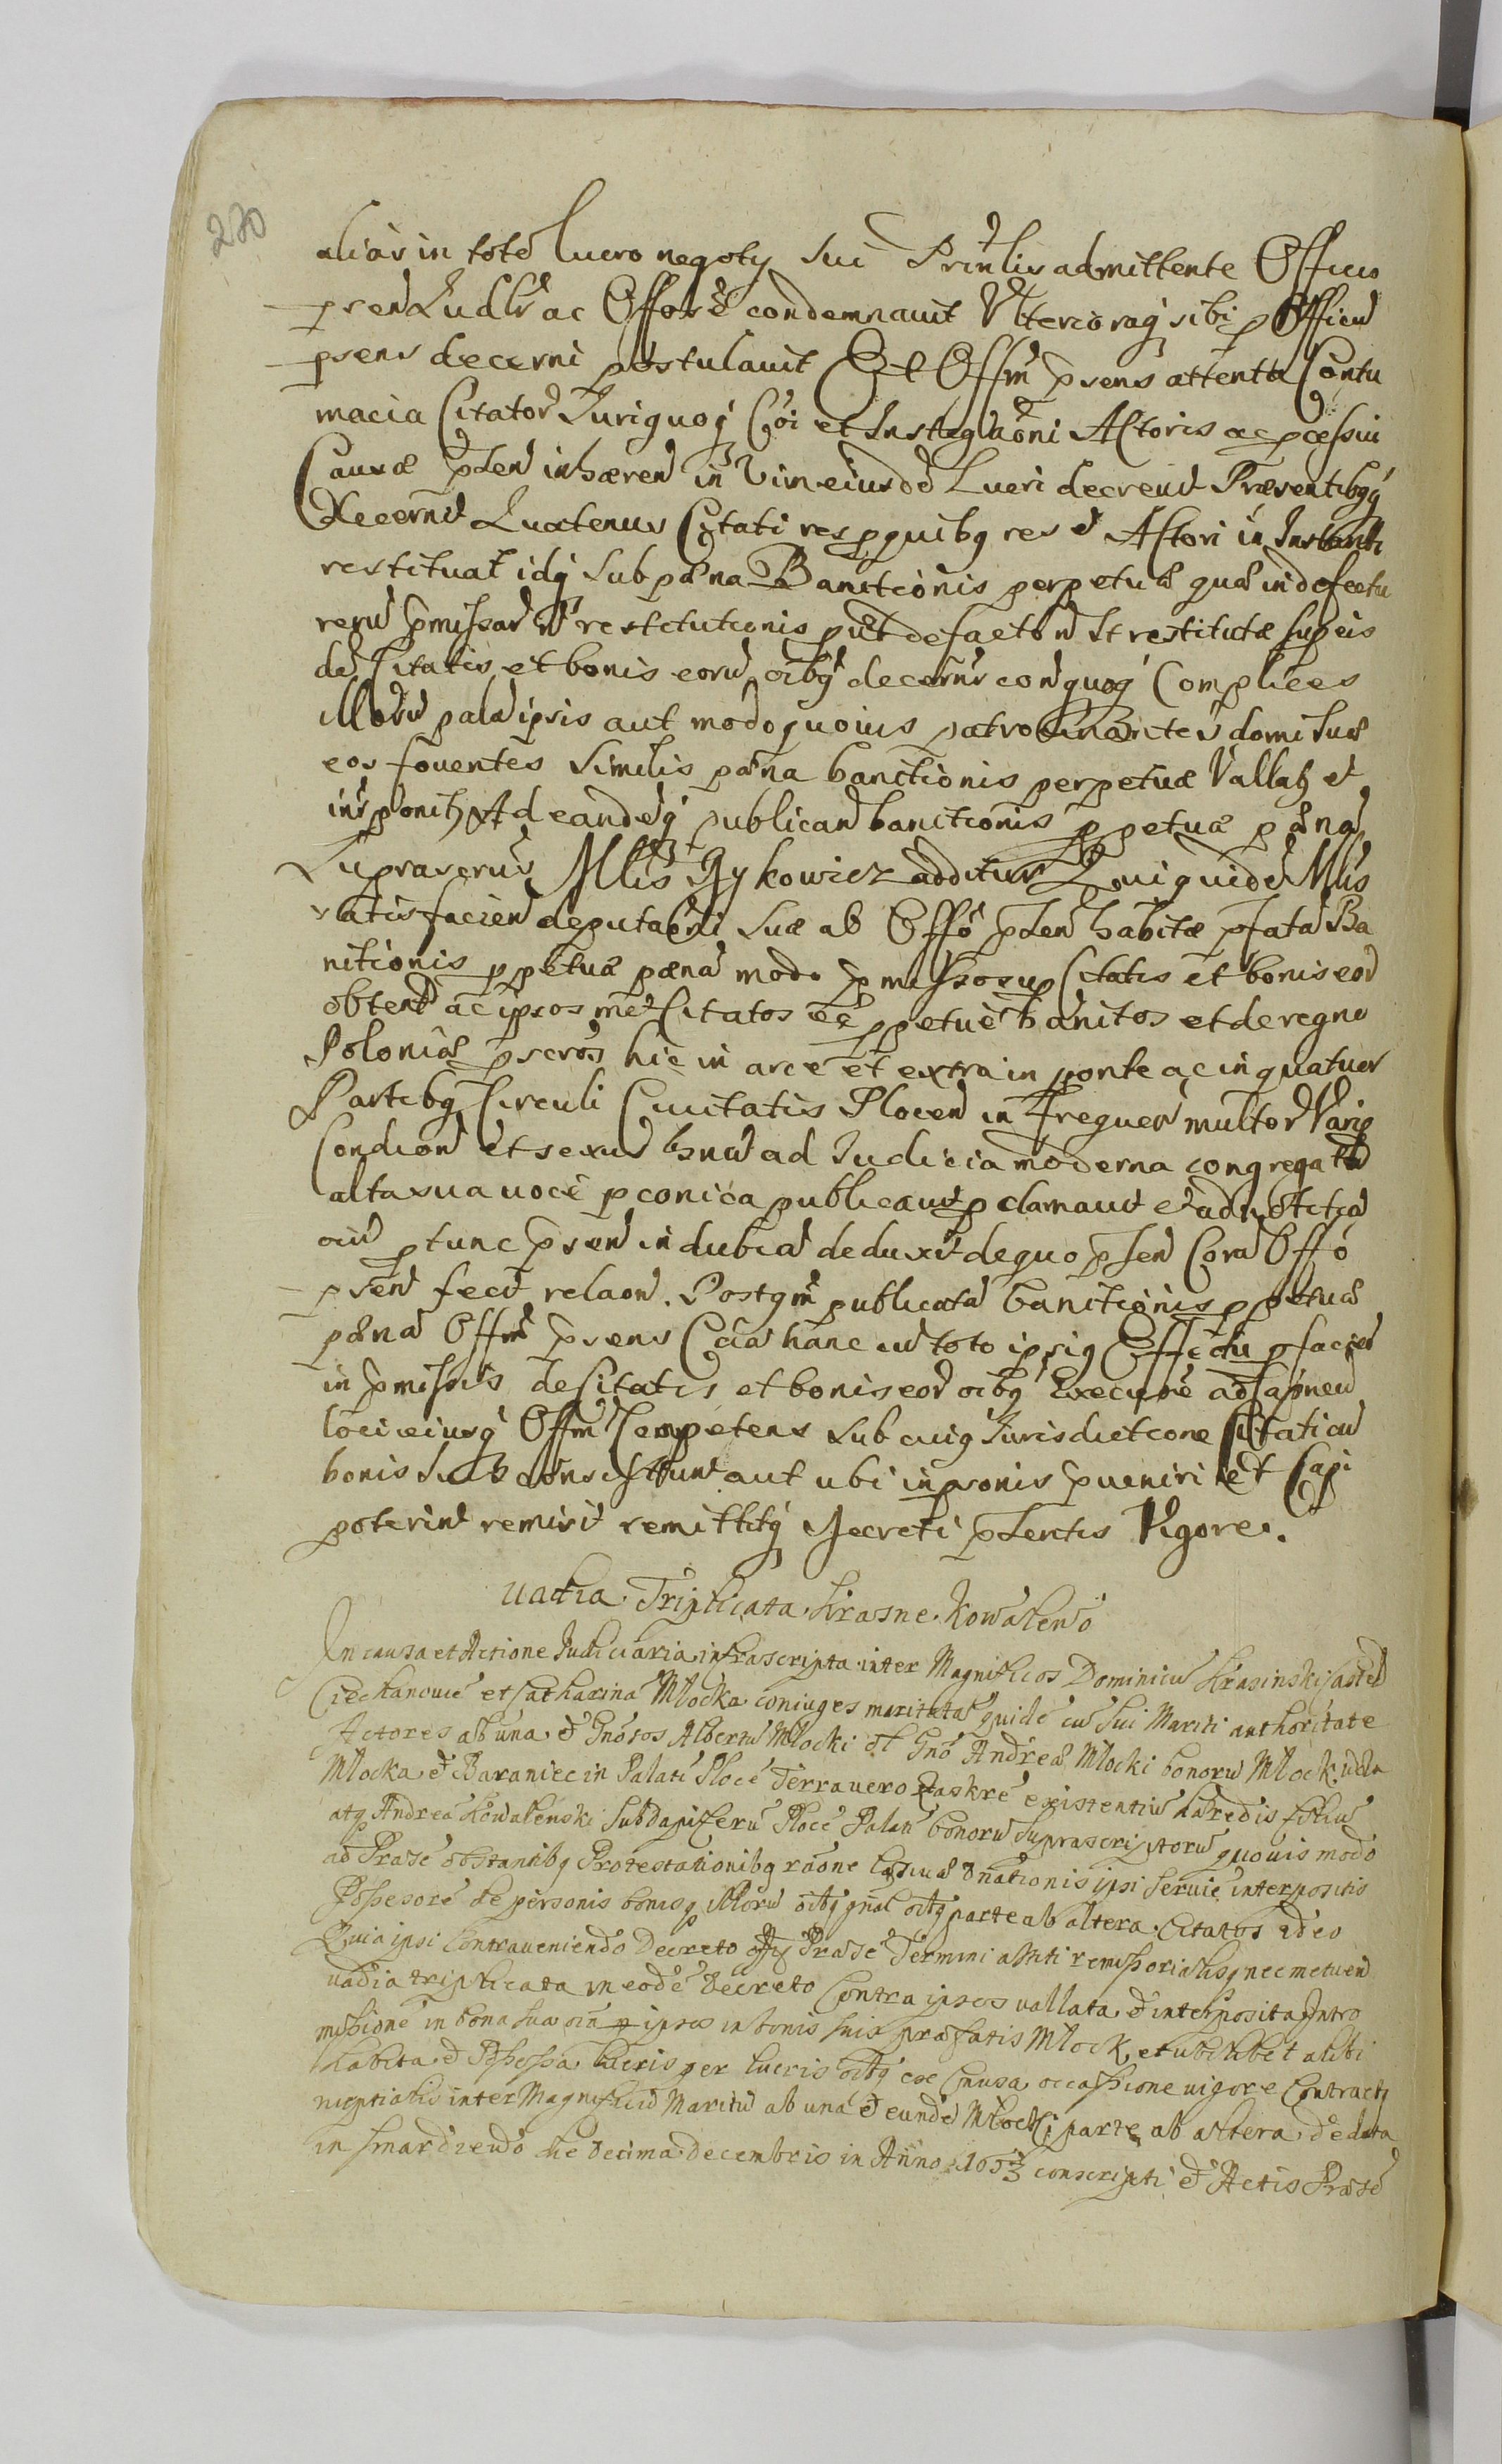 270
alias in toto lucro negoty sui Prinlis admittente Officio
psen Iudlr ac Offose condemnauit Vlteriorqȝ sibi p Officiu
psens decerni postulauit Et Offm psens attenta Contu
macia Citator Iuriquoqȝ Coi et Instigaoni Actoris ac pcessui
Causæ pden inhæren in Vim eiusde Lucri decreuit Præsentibqȝ
Decernit Quatenus Citati res pquibq res e Actori in Instanti
restituat idqȝ sub pæna Banitionis perpetuæ quæ in defectu
reru pmissar n restitutionis put defacto n st restitutæ sup eis
de Citatis et bonis eoru oibq decernr con quoqȝ Complices
illoru pala ipsis aut modo quouis patrocinantes domi suæ
eos fouentes Similis pæna banitionis perpetuæ Vallatȝ et
inr ponitȝ Ad eandeqȝ publican banitionis ppetuæ pæna
Suprascrus Mlis Rykowicz additur Qui quide Mlis
satisfacien deputaoni suæ ab Offo pden habitæ pfata Ba
nitionis ppetuæ pæna modo pmisso sup Citatis et bonis eor
obtent ac ipsos met Citatos ee ppetue banitos et de regno
Poloniæ pscros hic in arce et extra in ponte ac in quatuor
Partibq Circuli Ciuitatis Plocen in frequen multor Varie
Condion et sexus hnu ad Iudicia moderna congregatu
alta sua uoce pconica publicauit pclamauit et ad notitia
oiu ptunc psen indubia deduxit de quo pden Cora Offo
psen fecit relaon. Postqm publicata banitionis ppetuæ
pæna Offm psens Caa hanc cu toto ipsiq Effectu p facien
in pmissis de Citatis et bonis eor oibq Execune ad Capneu
loci eiusqȝ Offm Competens sub cuiq Iurisdictione Citati cu
bonis suis consistunt aut ubi in psonis pueniri et Capi
poterint remisit remittitqȝ Decreti pdentis Vigore.
Vadia Triplicata Krasne Kowalewo
In causa et Actione Iudiciaria infrascripta inter Magnificos Dominicu Krasinski Castel
Ciechanouie et Catharina Mlocka coniuges maritata quide cu Sui Mariti authoritate
Actores ab una et Gnosos Albertu Mlocki ol Gno Andreæ Mlocki bonoru Mlock
Mlocka et Baraniec in Palati Ploce Terra uero Zaskre existentiu hæredis filiu
atq Andrea Kowalenski Subdapiferu Ploce Palan bonoru Suprascriptoru quouis modo
ad Prase obstantibq Protestationibq raone donationis ipsi Seruie interpositis
Possesore de personis bonisq illoru oibq gnal oibq parte ab altera Citatos ideo
Quia ipsi Contraueniendo Decreto Offy Prase Termini assiti remissorialisq nec metuen
uadia triplicata in eode Decreto Contra ipsos uallata et interposita Intro
missione in bona sua oia p ipsos in bonis suis præfatis Mlock et ubilibet alibi
habita et Possessa lucris per lucris oibq ex Causa occassione uigore Contractq
nuptialis inter Magnificu Maritu ab una et eunde Mlocki parte ab altera de data
in Smardzewo die decima decembris in Anno 1653 conscripti et Actis Prase